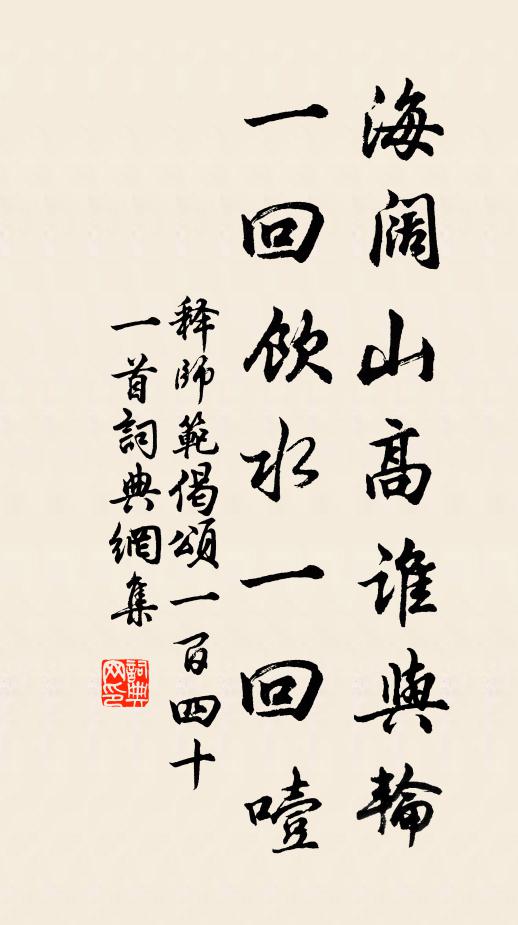 海阔山高谁與輪
一回飲水一回噎
释師範偈頌一百四十
一首詞典網集
詞典网印